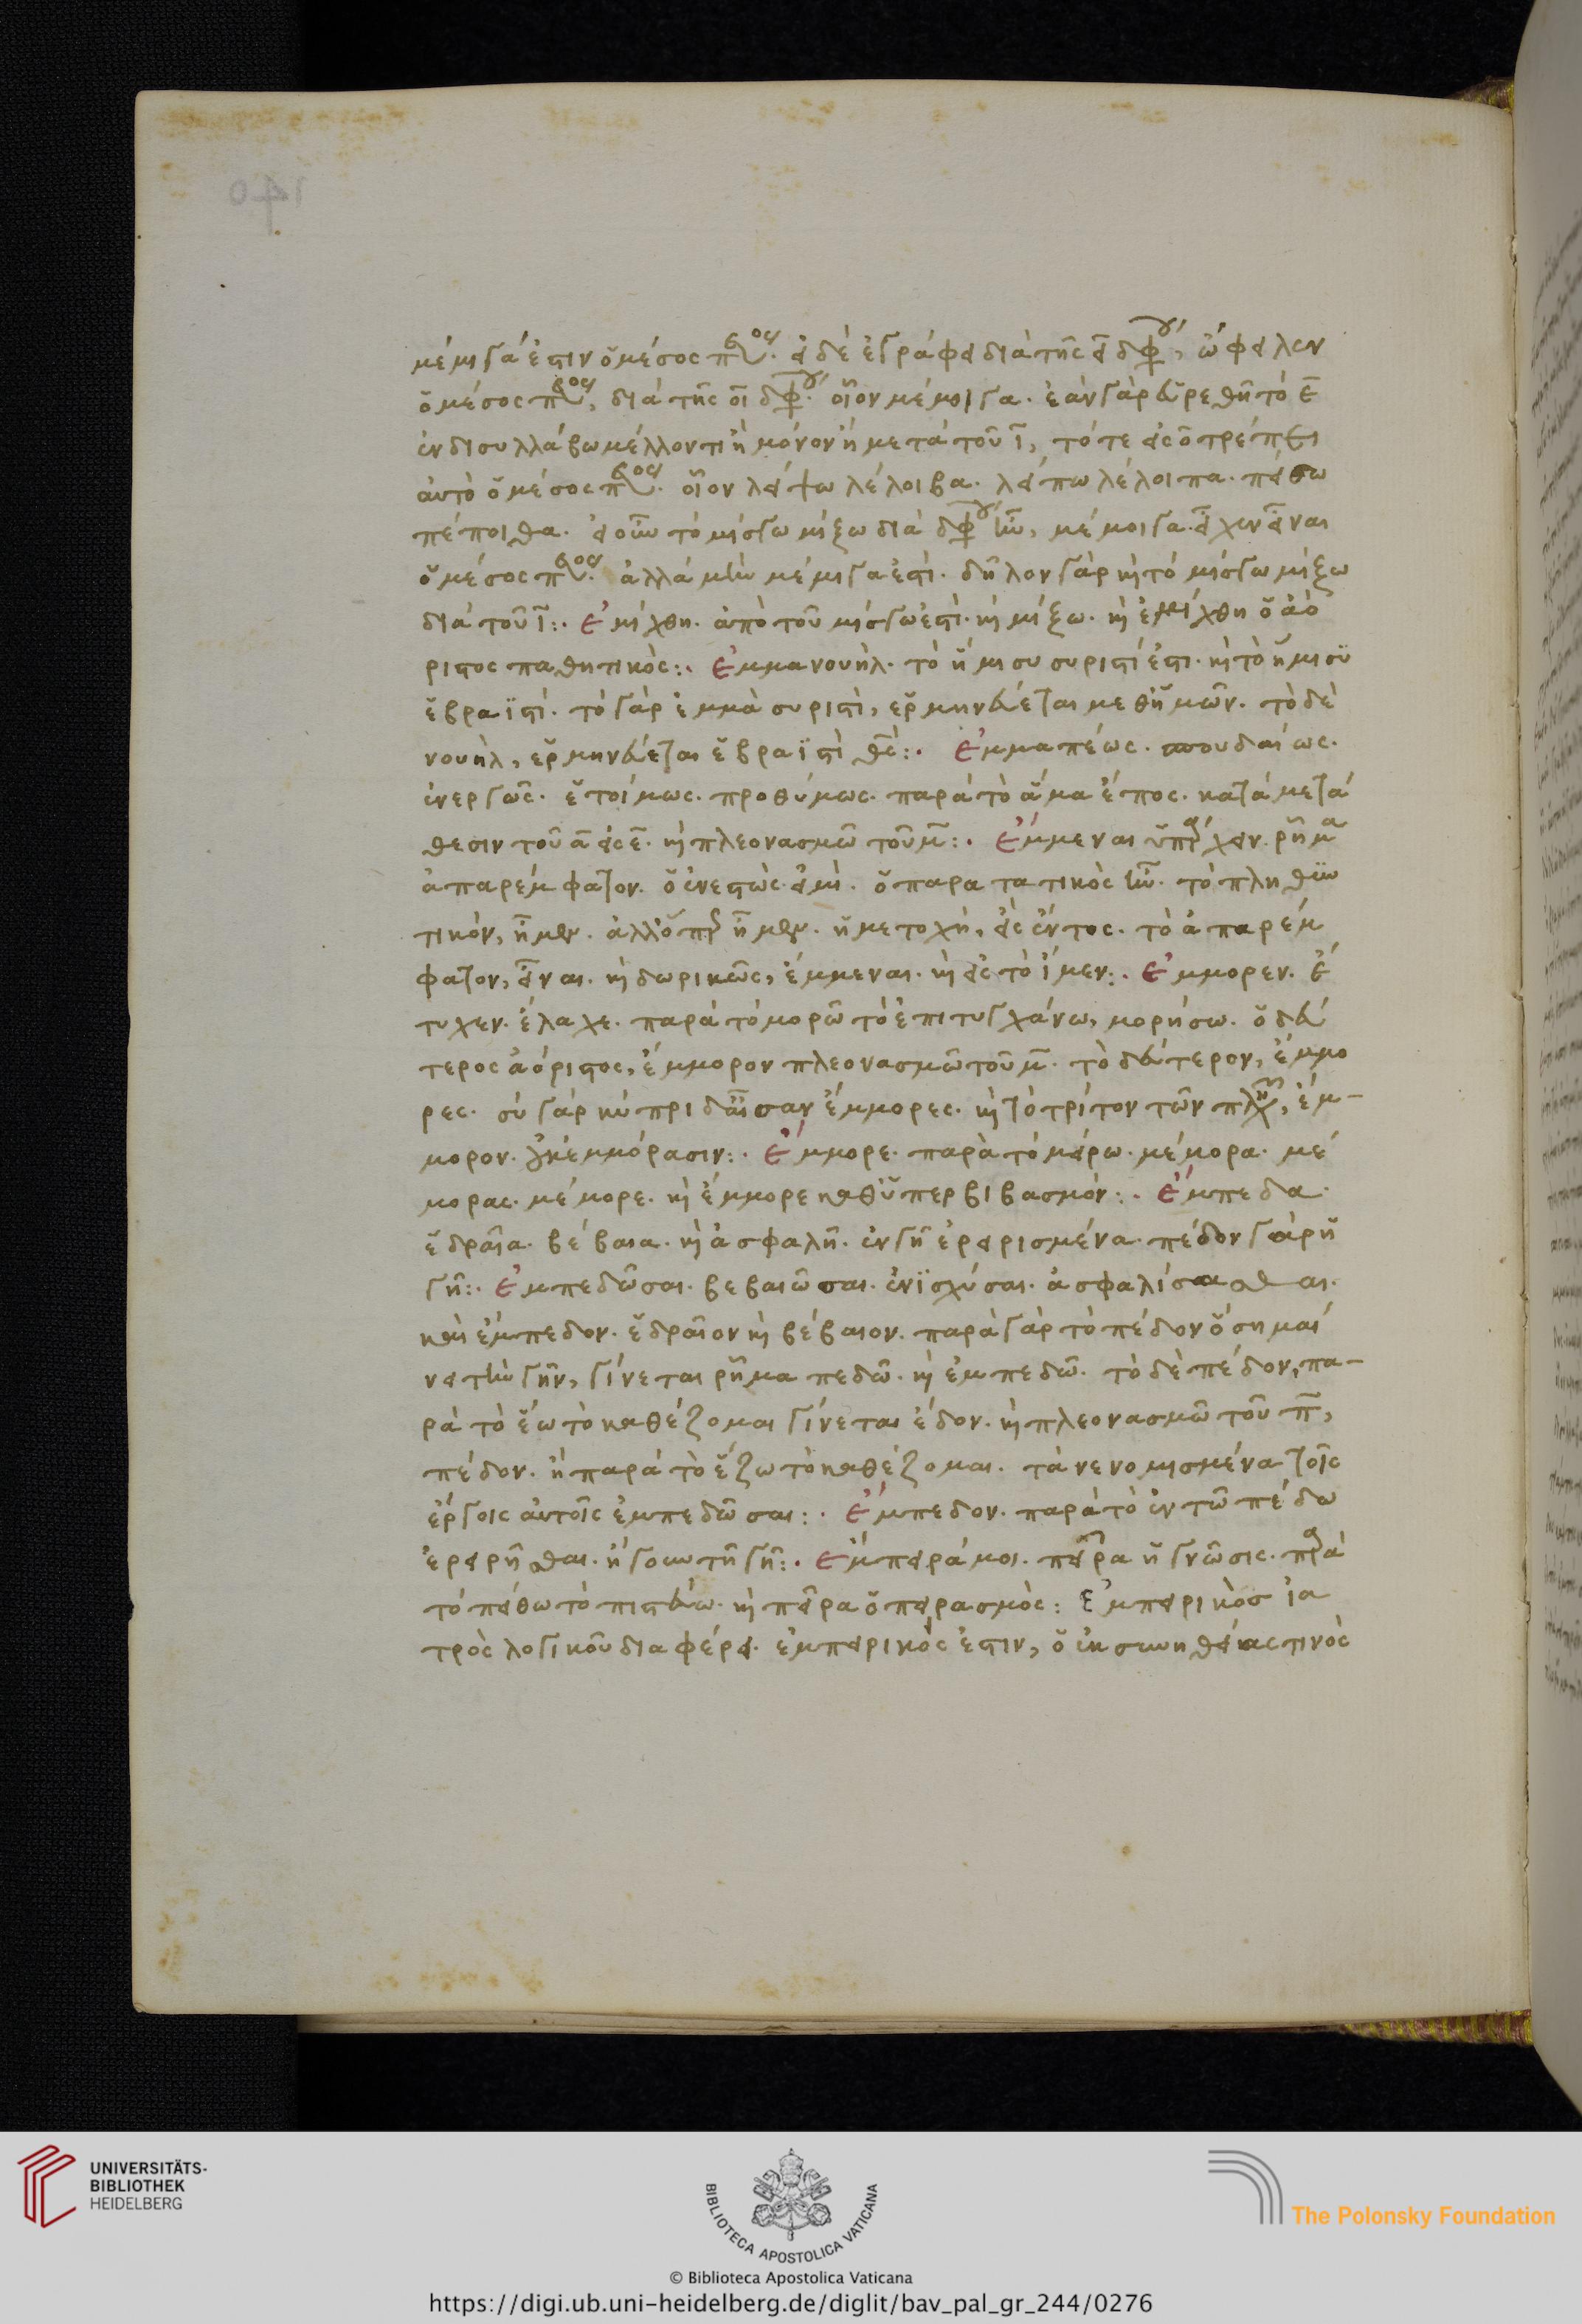 140
μέμιγά ἐστιν ὁ μέσος π. εἰ δὲ ἐγράφει διὰ τῆς ει δφ, ὤφειλεν
ὁ μέσος π, διὰ τῆς οι δφ. οἷον μέμοιγα. ἐὰν γὰρ εὑρεθῆ τὸ ε
ἐν δισυλλάβω μέλλοντι ἢ μόνον ἢ μετὰ τοῦ ι, τότε εἰς ο τρέπει
αὐτὸ ὁ μέσος π. οἷον λείψω λέλοιβα. λείπω λέλοιπα. πείσω
πέποιθα. εἰ οὖν τὸ μίσγω μίξω διὰ δφ ἦν, μέμοιγα εἶχεν εἶναι
ὁ μέσος π. ἀλλὰ μὴν μέμιγα ἐστί. δῆλον γὰρ κ τὸ μίσγω μίξω
διὰ τοῦ ι:. Ἐμίχθη. ἀπὸ τοῦ μίσγω ἐστί. κ μίξω. κ ἐμίχθη ὁ ἀό
ριστος παθητικὸς:. Ἐμμανουήλ. τὸ ἥμισυ συριστί ἐστι. κ τὸ ἥμισυ
ἑβραϊστί. τὸ γὰρ ἐμμὰ συριστὶ, ἑρμηνεύεται μεθ' ἡμῶν. τὸ δὲ
νουὴλ, ἑρμηνεύεται ἑβραϊστὶ θέ:. Ἐμμαπέως. σπουδαίως.
ἐνεργῶς. ἑτοίμως. προθύμως. παρὰ τὸ ἅμα ἔπος. κατὰ μετά
θεσιν τοῦ α εἰς ε. κ πλεονασμῶ τοῦ μ:. Ἔμμεναι ὑπάρχειν. ῥῆμα
ἀπαρέμφατον. ὁ ἐνεστὼς εἰμὶ. ὁ παρατατικὸς ἦν. τὸ πληθυν
τικὸν, ἦμεν. ἀλλ' ὅπερ ἦμεν. ἡ μετοχὴ, εἲς ἔντος. τὸ ἀπαρέμ
φατον, εἶναι. κ δωρικῶς, ἔμμεναι. κ εἰς τὸ ἴμεν:. Ἔμμορεν. ἔ
τυχεν. ἔλαχε. παρὰ τὸ μορῶ τὸ ἐπιτυγχάνω, μορήσω. ὁ δεύ
τερος ἀόριστος, ἔμμορον πλεονασμῶ τοῦ μ. τὸ δεύτερον, ἔμμο
ρες. σὺ γὰρ κύπρι δαῖσαν ἔμμορες. κ τὸ τρίτον τῶν πλη, ἔμ-
μορον. ἐμμόρασιν:. Ἔμμορε. παρὰ τὸ μείρω. μέμορα. μέ
μορας. μέμορε. κ ἔμμορε καθ' ὑπερβιβασμόν:. Ἔμπεδα.
ἑδραῖα. βέβαια. κ ἀσφαλῆ. ἐν γῆ ἐρηρισμένα. πέδον γὰρ ἡ
γῆ:. Ἐμπεδῶσαι. βεβαιῶσαι. ἐνϊσχύσαι. ἀσφαλίσασθαι.
καὶ ἔμπεδον. ἑδραῖον κ βέβαιον. παρὰ γὰρ τὸ πέδον ὃ σημαί
νει τὴν γῆν, γίνεται ῥῆμα πεδῶ. κ ἐμπεδῶ. τὸ δὲ πέδον, πα-
ρὰ τὸ ἕω τὸ καθέζομαι γίνεται ἕδον. κ πλεονασμῶ τοῦ π,
πέδον. ἢ παρὰ τὸ ἕζω τὸ καθέζομαι. τὰ νενομισμένα τοῖς
ἔργοις αὐτοῖς ἐμπεδῶσαι:. Ἔμπεδον. παρὰ τὸ ἐν τῶ πέδω
ἐρηρεῖσθαι. ἤγουν τῆ γῆ:. Ἐμπείραμοι. πεῖρα ἡ γνῶσις. παρὰ
τὸ πείθω τὸ πιστεύω. κ πεῖρα ὁ πειρασμὸς: Ἐμπειρικὸς ἰα
τρὸς λογικοῦ διαφέρει. ἐμπειρικός ἐστιν, ὁ ἐκ συνηθείας τινὸς
UNIVERSITÄTS-
BIBLIOTHEK
HEIDELBERG
BIBLIOTECA APOSTOLICA VATICANA
The Polonsky Foundation
© Biblioteca Apostolica Vaticana
https://digi.ub.uni-heidelberg.de/diglit/bav_pal_gr_244/0276